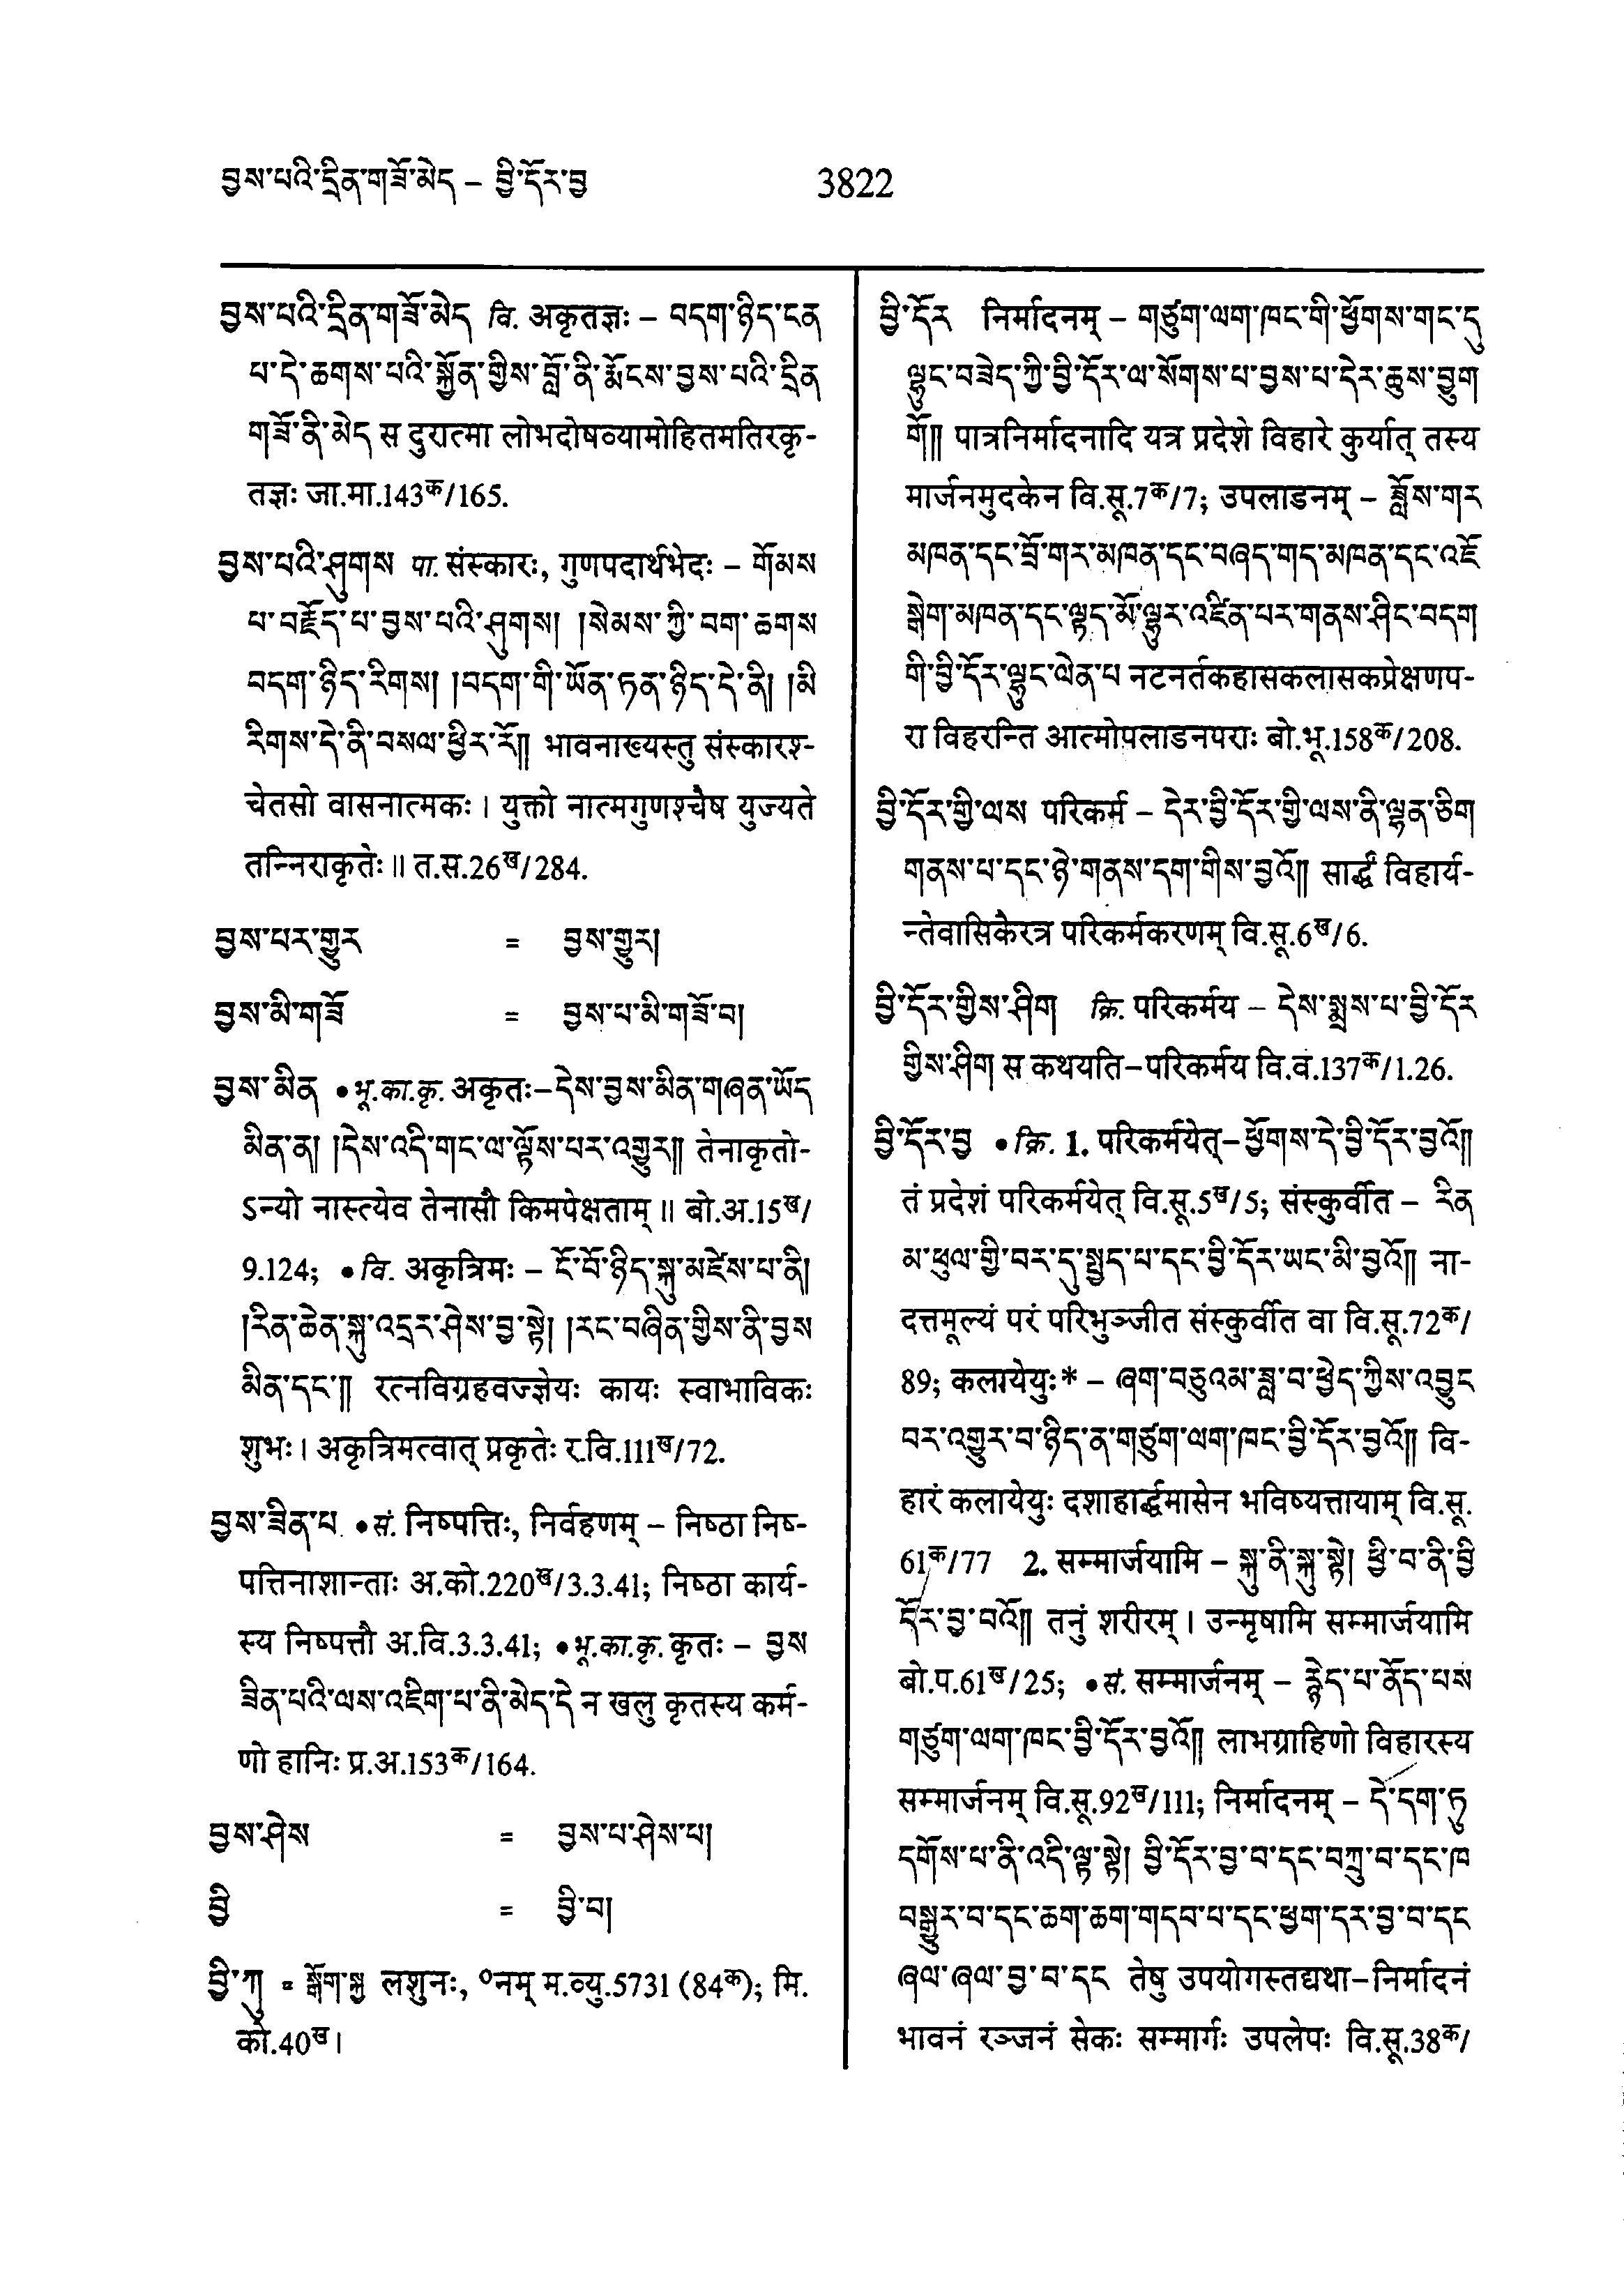 བྱས་པའི་དྲིན་གཟོ་མེད – བྱི་དོར་བྱ
3822
བྱས་པའི་དྲིན་གཟོ་མེད वि. अकृतज्ञः – བདག་ཉིད་ངན
པ་དེ་ཆགས་པའི་སྐྱོན་གྱིས་བློ་ནི་རྨོངས་བྱས་པའི་དྲིན
གཟོ་ནི་མེད स दुरात्मा लोभदोषव्यामोहितमतिरकृ-
तज्ञः जा.मा.143क/165.
བྱས་པའི་ཤུགས पा. संस्कारः, गुणपदार्थभेदः – གོམས
པ་བརྗོད་པ་བྱས་པའི་ཤུགས། །སེམས་ཀྱི་བག་ཆགས
བདག་ཉིད་རིགས། །བདག་གི་ཡོན་ཏན་ཉིད་དེ་ནི། །མི
རིགས་དེ་ནི་བསལ་ཕྱིར་རོ༎ भावनाख्यस्तु संस्कारश्-
चेतसो वासनात्मकः । युक्तो नात्मगुणश्चैष युज्यते
तन्निराकृतेः ॥ त.स.26ख/284.
བྱས་པར་གྱུར = བྱས་གྱུར།
བྱས་མི་གཟོ = བྱས་པ་མི་གཟོ་བ།
བྱས་མིན •भू.का.कृ. अकृतः–དེས་བྱས་མིན་གཞན་ཡོད
མིན་ན། །དེས་འདི་གང་ལ་ལྟོས་པར་འགྱུར༎ तेनाकृतो-
ऽन्यो नास्त्येव तेनासौ किमपेक्षताम् ॥ बो.अ.15ख/
9.124; •वि. अकृत्रिमः – ངོ་བོ་ཉིད་སྐུ་མཛེས་པ་ནི།
།རིན་ཆེན་སྐུ་འདྲར་ཤེས་བྱ་སྟེ། །རང་བཞིན་གྱིས་ནི་བྱས
མིན་དང་༎ रत्नविग्रहवज्ज्ञेयः कायः स्वाभाविकः
शुभः । अकृत्रिमत्वात् प्रकृतेः र.वि.111ख/72.
བྱས་ཟིན་པ •सं. निष्पत्तिः, निर्वहणम् – निष्ठा निष्-
पत्तिनाशान्ताः अ.को.220ख/3.3.41; निष्ठा कार्य-
स्य निष्पत्तौ अ.वि.3.3.41; •भू.का.कृ. कृतः – བྱས
ཟིན་པའི་ལས་འཇིག་པ་ནི་མེད་དེ न खलु कृतस्य कर्म-
णो हानिः प्र.अ.153क/164.
བྱས་ཤེས = བྱས་པ་ཤེས་པ།
བྱི = བྱི་བ།
བྱི་ཀུ = སྒོག་སྐྱ लशुनः, ०नम् म.व्यु.5731 (84क); मि.
को.40ख।
བྱི་དོར निर्मादनम् – གཙུག་ལག་ཁང་གི་ཕྱོགས་གང་དུ
ལྷུང་བཟེད་ཀྱི་བྱི་དོར་ལ་སོགས་པ་བྱས་པ་དེར་ཆུས་བྱུག
གོ༎ पात्रनिर्मादनादि यत्र प्रदेशे विहारे कुर्यात् तस्य
मार्जनमुदकेन वि.सू.7क/7; उपलाडनम् – ཟློས་གར
མཁན་དང་བྲོ་གར་མཁན་དང་བཞད་གད་མཁན་དང་འཇོ
སྒེག་མཁན་དང་ལྟད་མོ་ལྷུར་འཛིན་པར་གནས་ཤིང་བདག
གི་བྱི་དོར་ལྷུང་ལེན་པ नटनर्तकहासकलासकप्रेक्षणप-
रा विहरन्ति आत्मोपलाडनपराः बो.भू.158क/208.
བྱི་དོར་གྱི་ལས परिकर्म – དེར་བྱི་དོར་གྱི་ལས་ནི་ལྷན་ཅིག
གནས་པ་དང་ཉེ་གནས་དག་གིས་བྱའོ༎ सार्द्धं विहार्य-
न्तेवासिकैरत्र परिकर्मकरणम् वि.सू.6ख/6.
བྱི་དོར་གྱིས་ཤིག क्रि. परिकर्मय – དེས་སྨྲས་པ་བྱི་དོར
གྱིས་ཤིག स कथयति–परिकर्मय वि.व.137क/1.26.
བྱི་དོར་བྱ •क्रि. 1. परिकर्मयेत्–ཕྱོགས་དེ་བྱི་དོར་བྱའོ༎
तं प्रदेशं परिकर्मयेत् वि.सू.5ख/5; संस्कुर्वीत – རིན
མ་ཕུལ་གྱི་བར་དུ་སྤྱད་པ་དང་བྱི་དོར་ཡང་མི་བྱའོ༎ ना-
दत्तमूल्यं परं परिभुञ्जीत संस्कुर्वीत वा वि.सू.72क/
89; कलायेयुः* – ཞག་བཅུའམ་ཟླ་བ་ཕྱེད་ཀྱིས་འབྱུང
བར་འགྱུར་བ་ཉིད་ན་གཙུག་ལག་ཁང་བྱི་དོར་བྱའོ༎ वि-
हारं कलायेयुः दशाहार्द्धमासेन भविष्यत्तायाम् वि.सू.
61क/77 2. सम्मार्जयामि – སྐུ་ནི་སྐུ་སྟེ། ཕྱི་བ་ནི་བྱི
དོར་བྱ་བའོ༎ तनुं शरीरम् । उन्मृषामि सम्मार्जयामि
बो.प.61ख/25; •सं. सम्मार्जनम् – རྙེད་པ་ནོད་པས
གཙུག་ལག་ཁང་བྱི་དོར་བྱའོ༎ लाभग्राहिणो विहारस्य
सम्मार्जनम् वि.सू.92ख/111; निर्मादनम् – དེ་དག་ཏུ
དགོས་པ་ནི་འདི་ལྟ་སྟེ། བྱི་དོར་བྱ་བ་དང་བཀྲུ་བ་དང་ཁ
བསྒྱུར་བ་དང་ཆག་ཆག་གདབ་པ་དང་ཕྱག་དར་བྱ་བ་དང
ཞལ་ཞལ་བྱ་བ་དང तेषु उपयोगस्तद्यथा–निर्मादनं
भावनं रञ्जनं सेकः सम्मार्गः उपलेपः वि.सू.38क/